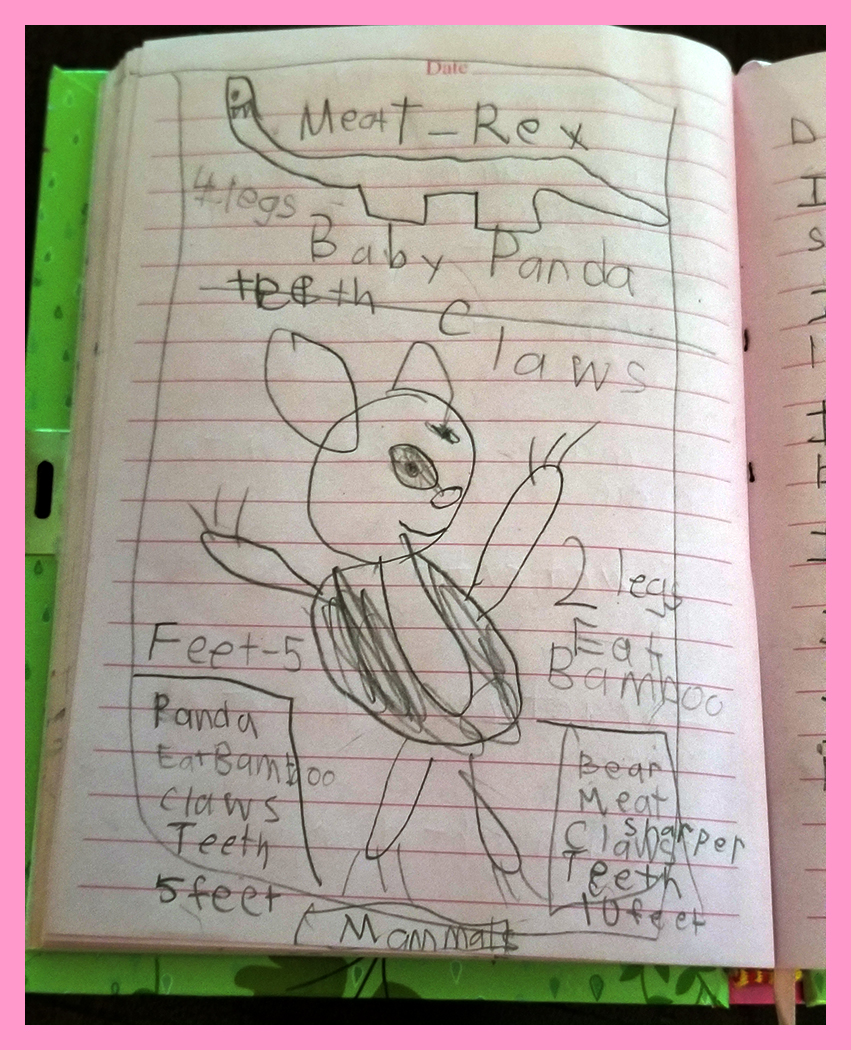 Date
Meat-Rex
4 legs
Baby Panda
teeth
Claws
2 legs
Eat
Bamboo
Feet-5
Panda
Eat Bamboo
Claws
Teeth
5 feet
Bear
Meat
sharper
Claws
Teeth
10 feet
Mammals